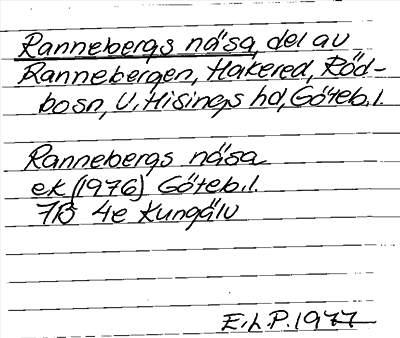 Rannebergs nåsa, del av
Rannebergen, Hakered, Röd-
bosn, V. Hisings hd, Göteb. l.
Rannebergs nåsa
ek (1976) Göteb. l.
7B 4e Kungälv
E.L.P. 1977